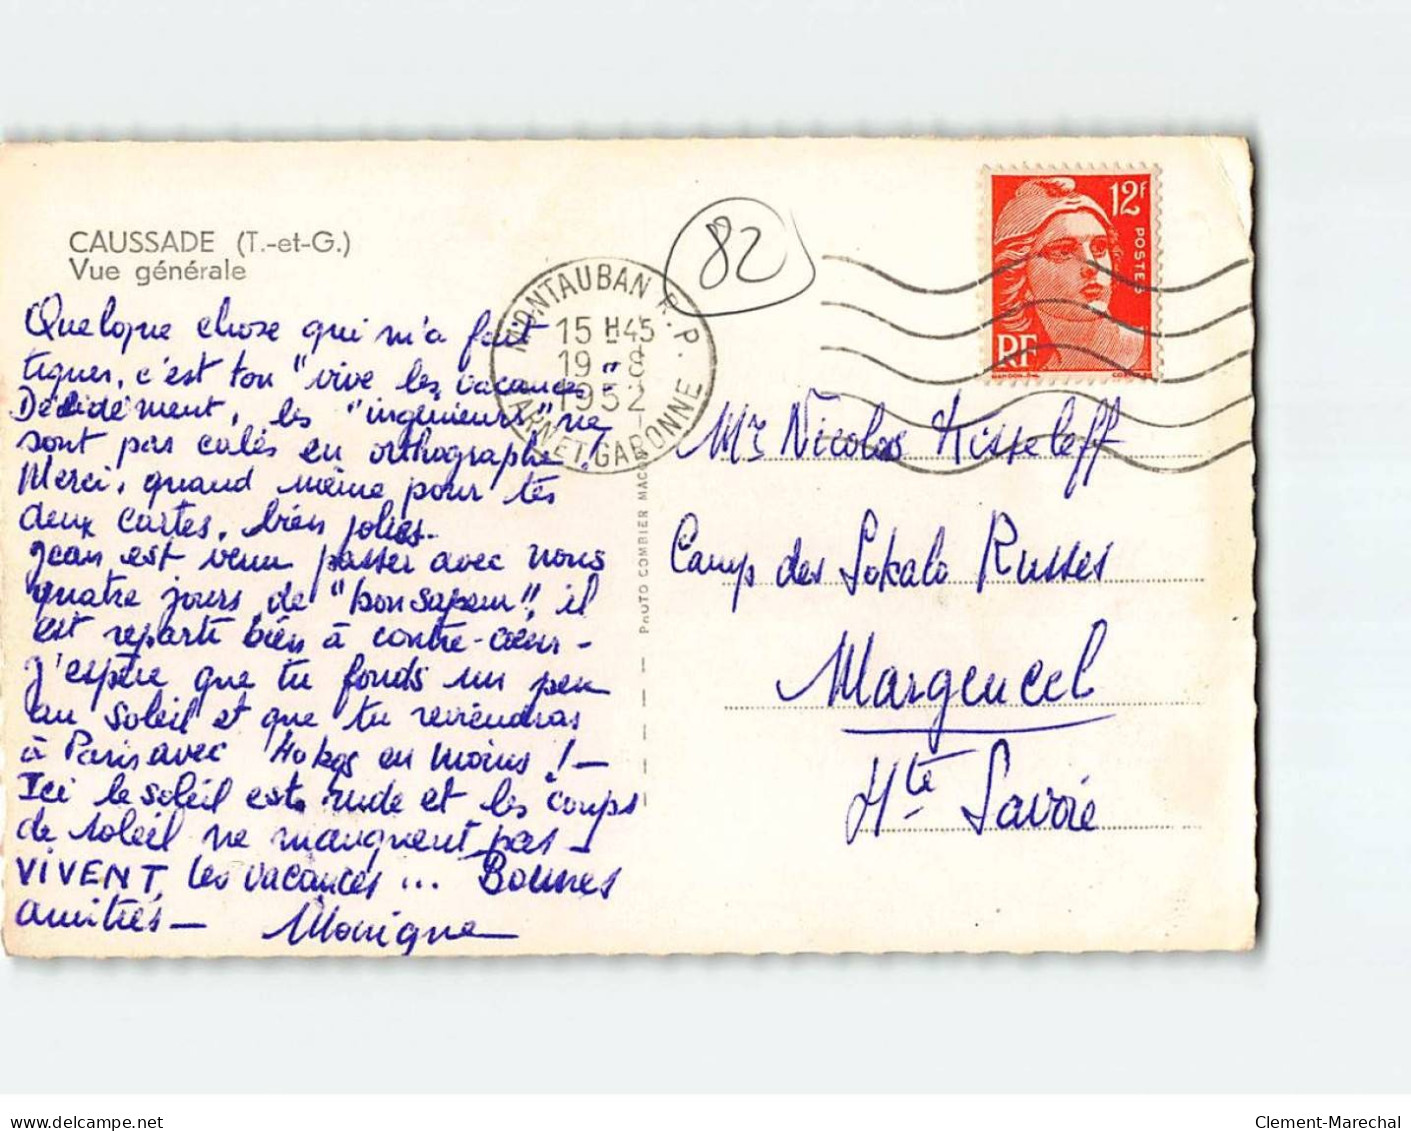 CAUSSADE (T.-et-G.)
Vue générale
Quelque chose qui m'a fait
tiquer, c'est ton "vive les vacances"
Dédidément, les "ingénieurs" ne
sont pas calés en orthographe !
Merci, quand même pour tes
deux cartes, bien jolies.
Jean est venu passer avec nous
quatre jours de "bon sapeur", il
est reparti bien à contre-cœur -
J'espère que tu fonds un peu
au soleil et que tu reviendras
à Paris avec kgs en moins ! -
Ici le soleil est rude et les coups
de soleil ne manquent pas -
VIVENT les vacances ... Bonnes
amitiés - Monique
82
MONTAUBAN R.P.
15 H 45
19 - 8
1952
TARN ET GARONNE
12F
POSTES
RF
PHOTO COMBIER MACON
Mr Nicolas Kisseleff
Camp des Sokols Russes
Margencel
Hte Savoie
delcampe.net
Clement-Marechal